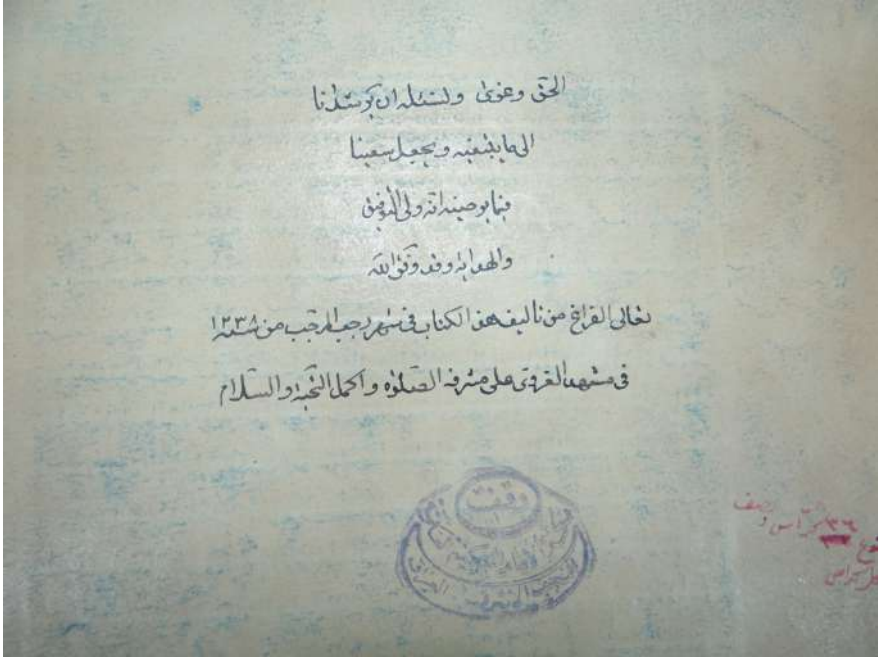 الحق وعونك ونسئله ان يرشدنا
الى ما ينفعنه ويجعل سعينا
فيما يوصينه انه ولى التوفيق
والهداية وقد وفق الله
تعالى الفراغ من تاليف هذا الكتاب فى شهر رجب المرجب من سنة ١٢٣٨
فى مشهد الغروى على مشرفه الصلوة واكمل التحية والسلام
وقف
النجف الاشرف العراق
٣٦ كراس ونصف